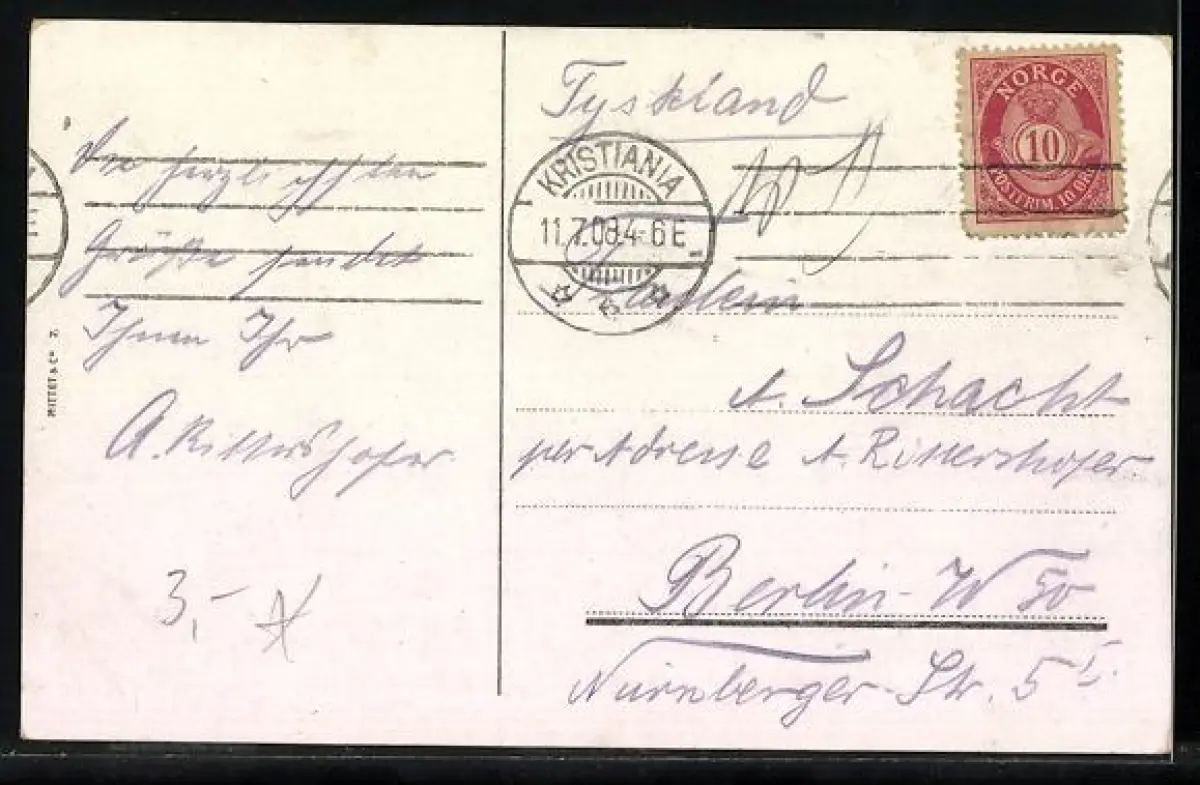 Die herzlichsten
Grüße sendet
Ihnen Ihr
A. Rittershofer.
3,-
MITTET & Co
Tyskland
NORGE
10
POSTFRIM. 10 ØRE
KRISTIANIA
11.7.09.4-6E
Fräulein
A. Schacht
per Adresse A. Rittershofer.
Berlin-W 50
Nürnberger-Str. 5